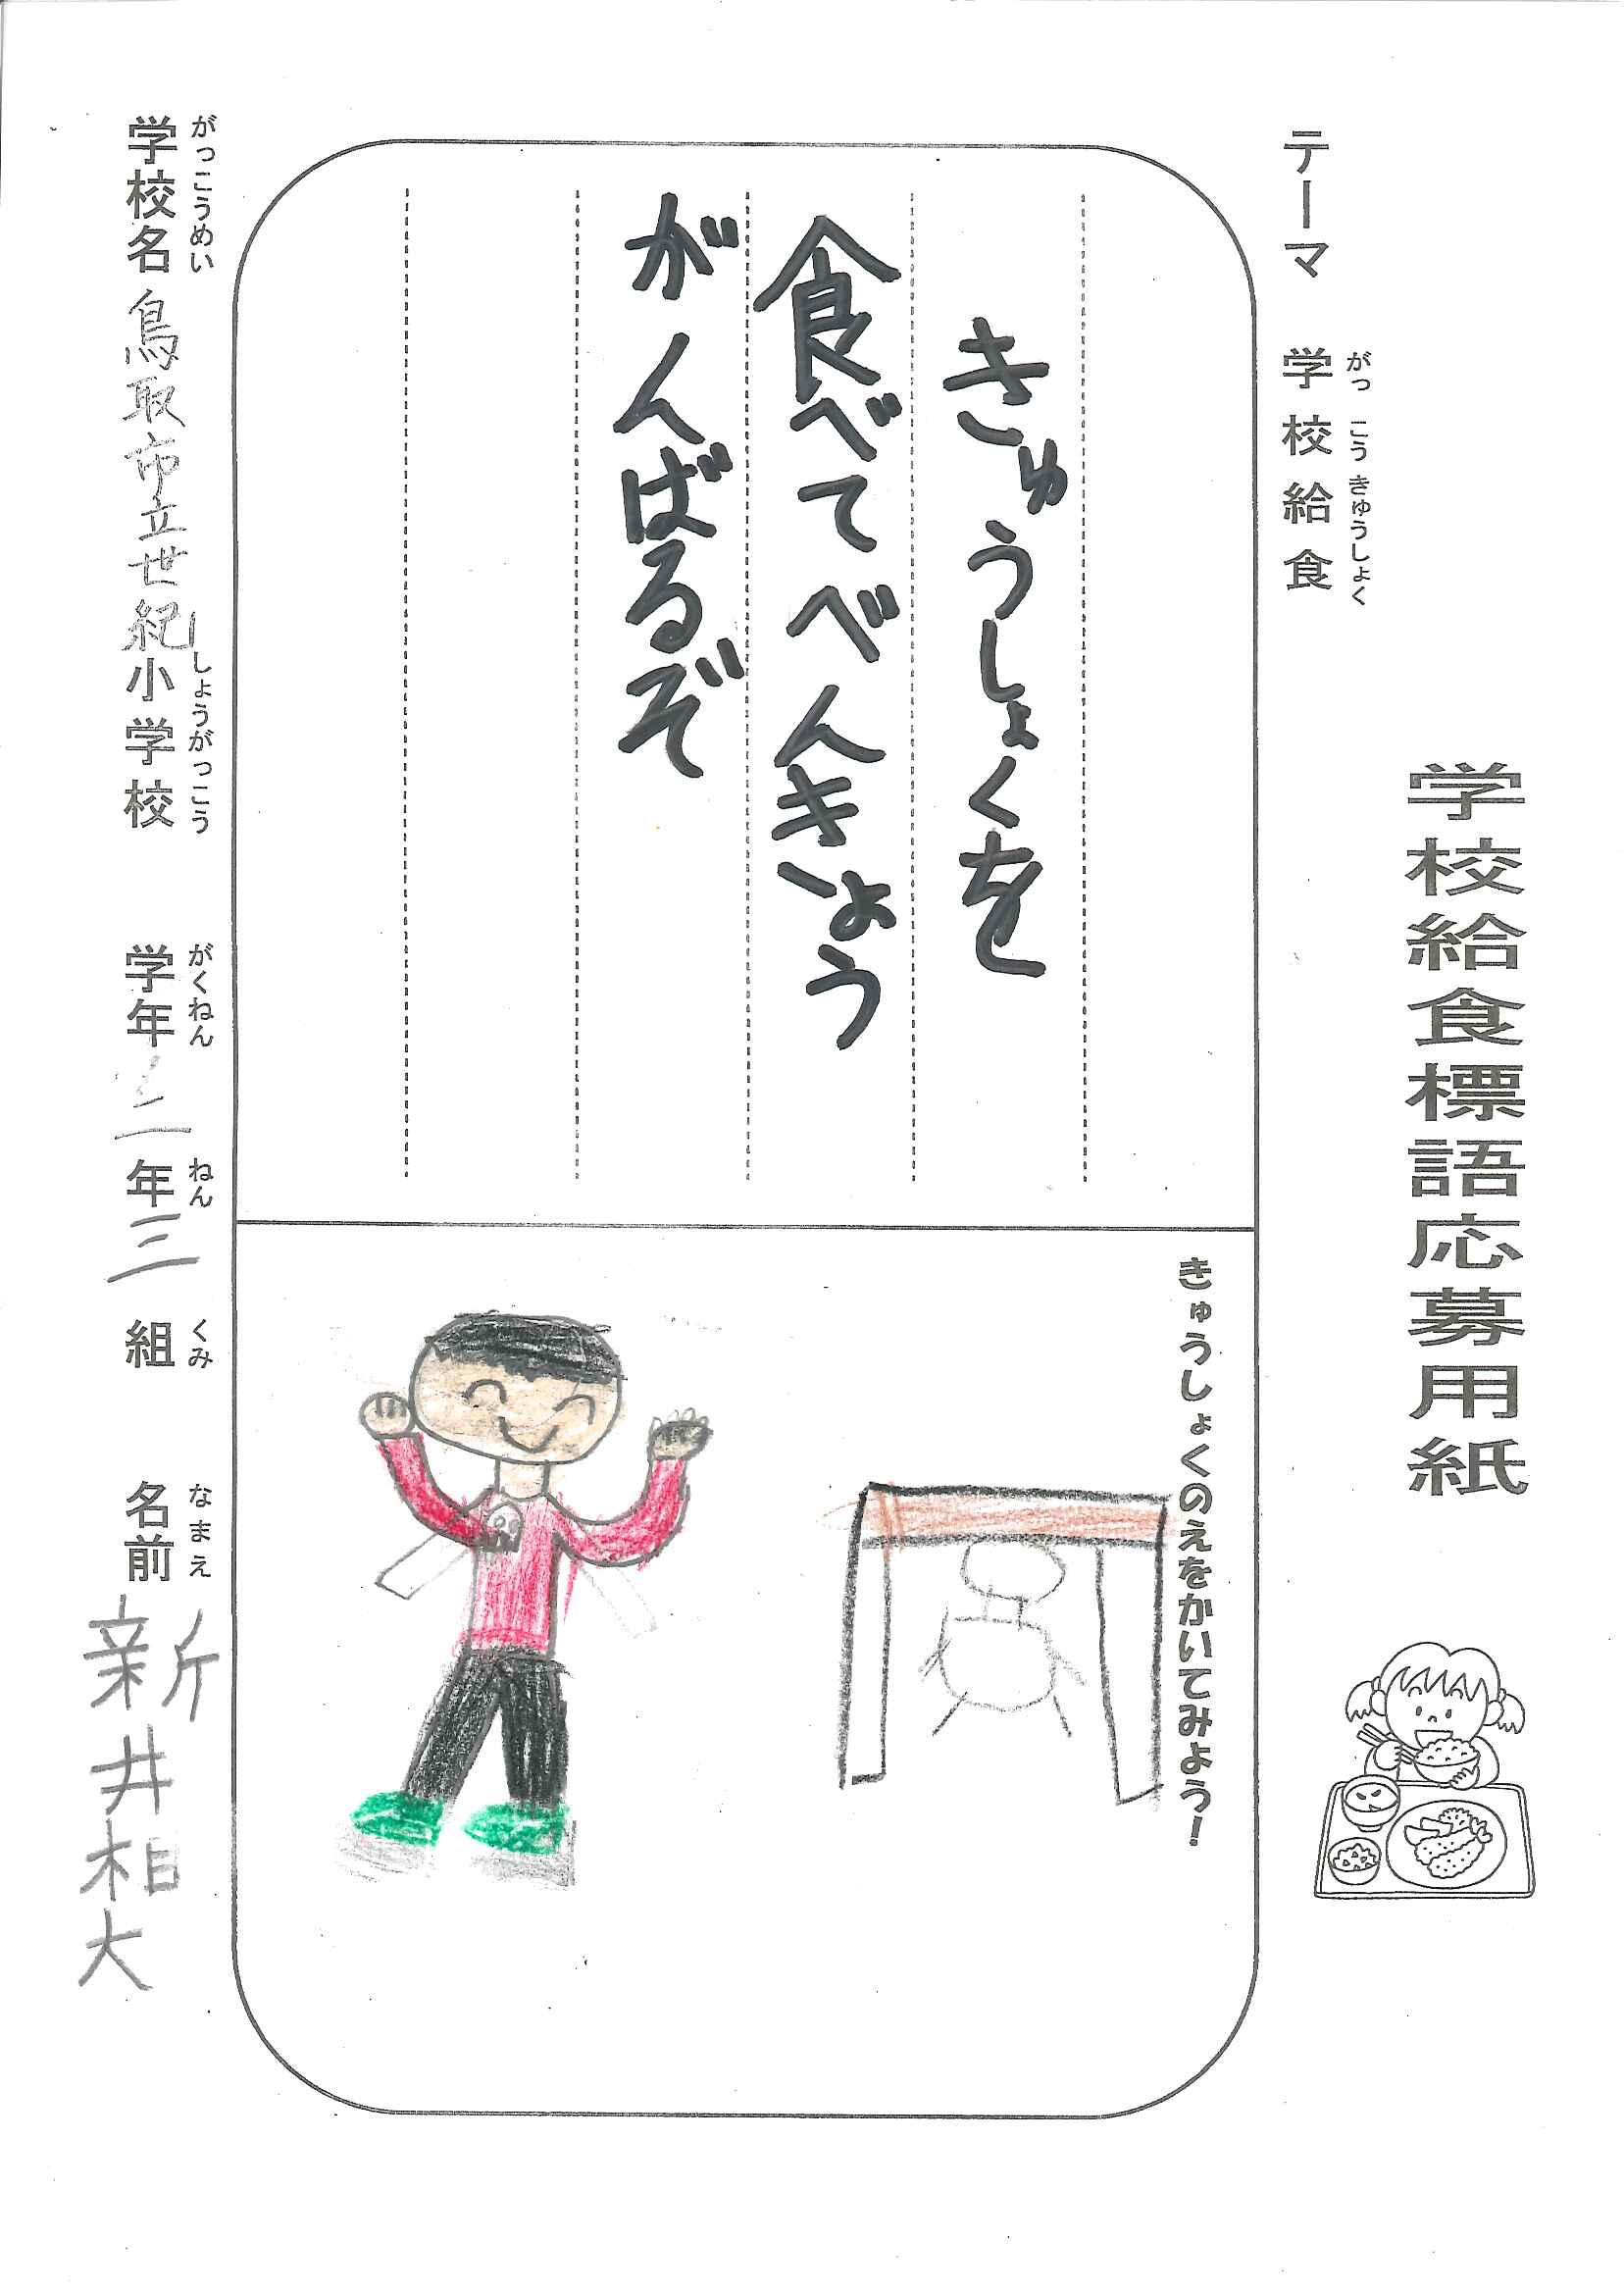 学校給食標語応募用紙
テーマ 学校給食
がっこうきゅうしょく
きゅうしょくを
食べてべんきょう
がんばるぞ
きゅうしょくのえをかいてみよう！
がっこうめい しょうがっこう がくねん ねん くみ なまえ
学校名 鳥取市立世紀小学校 学年 二年 三組 名前 新井相大